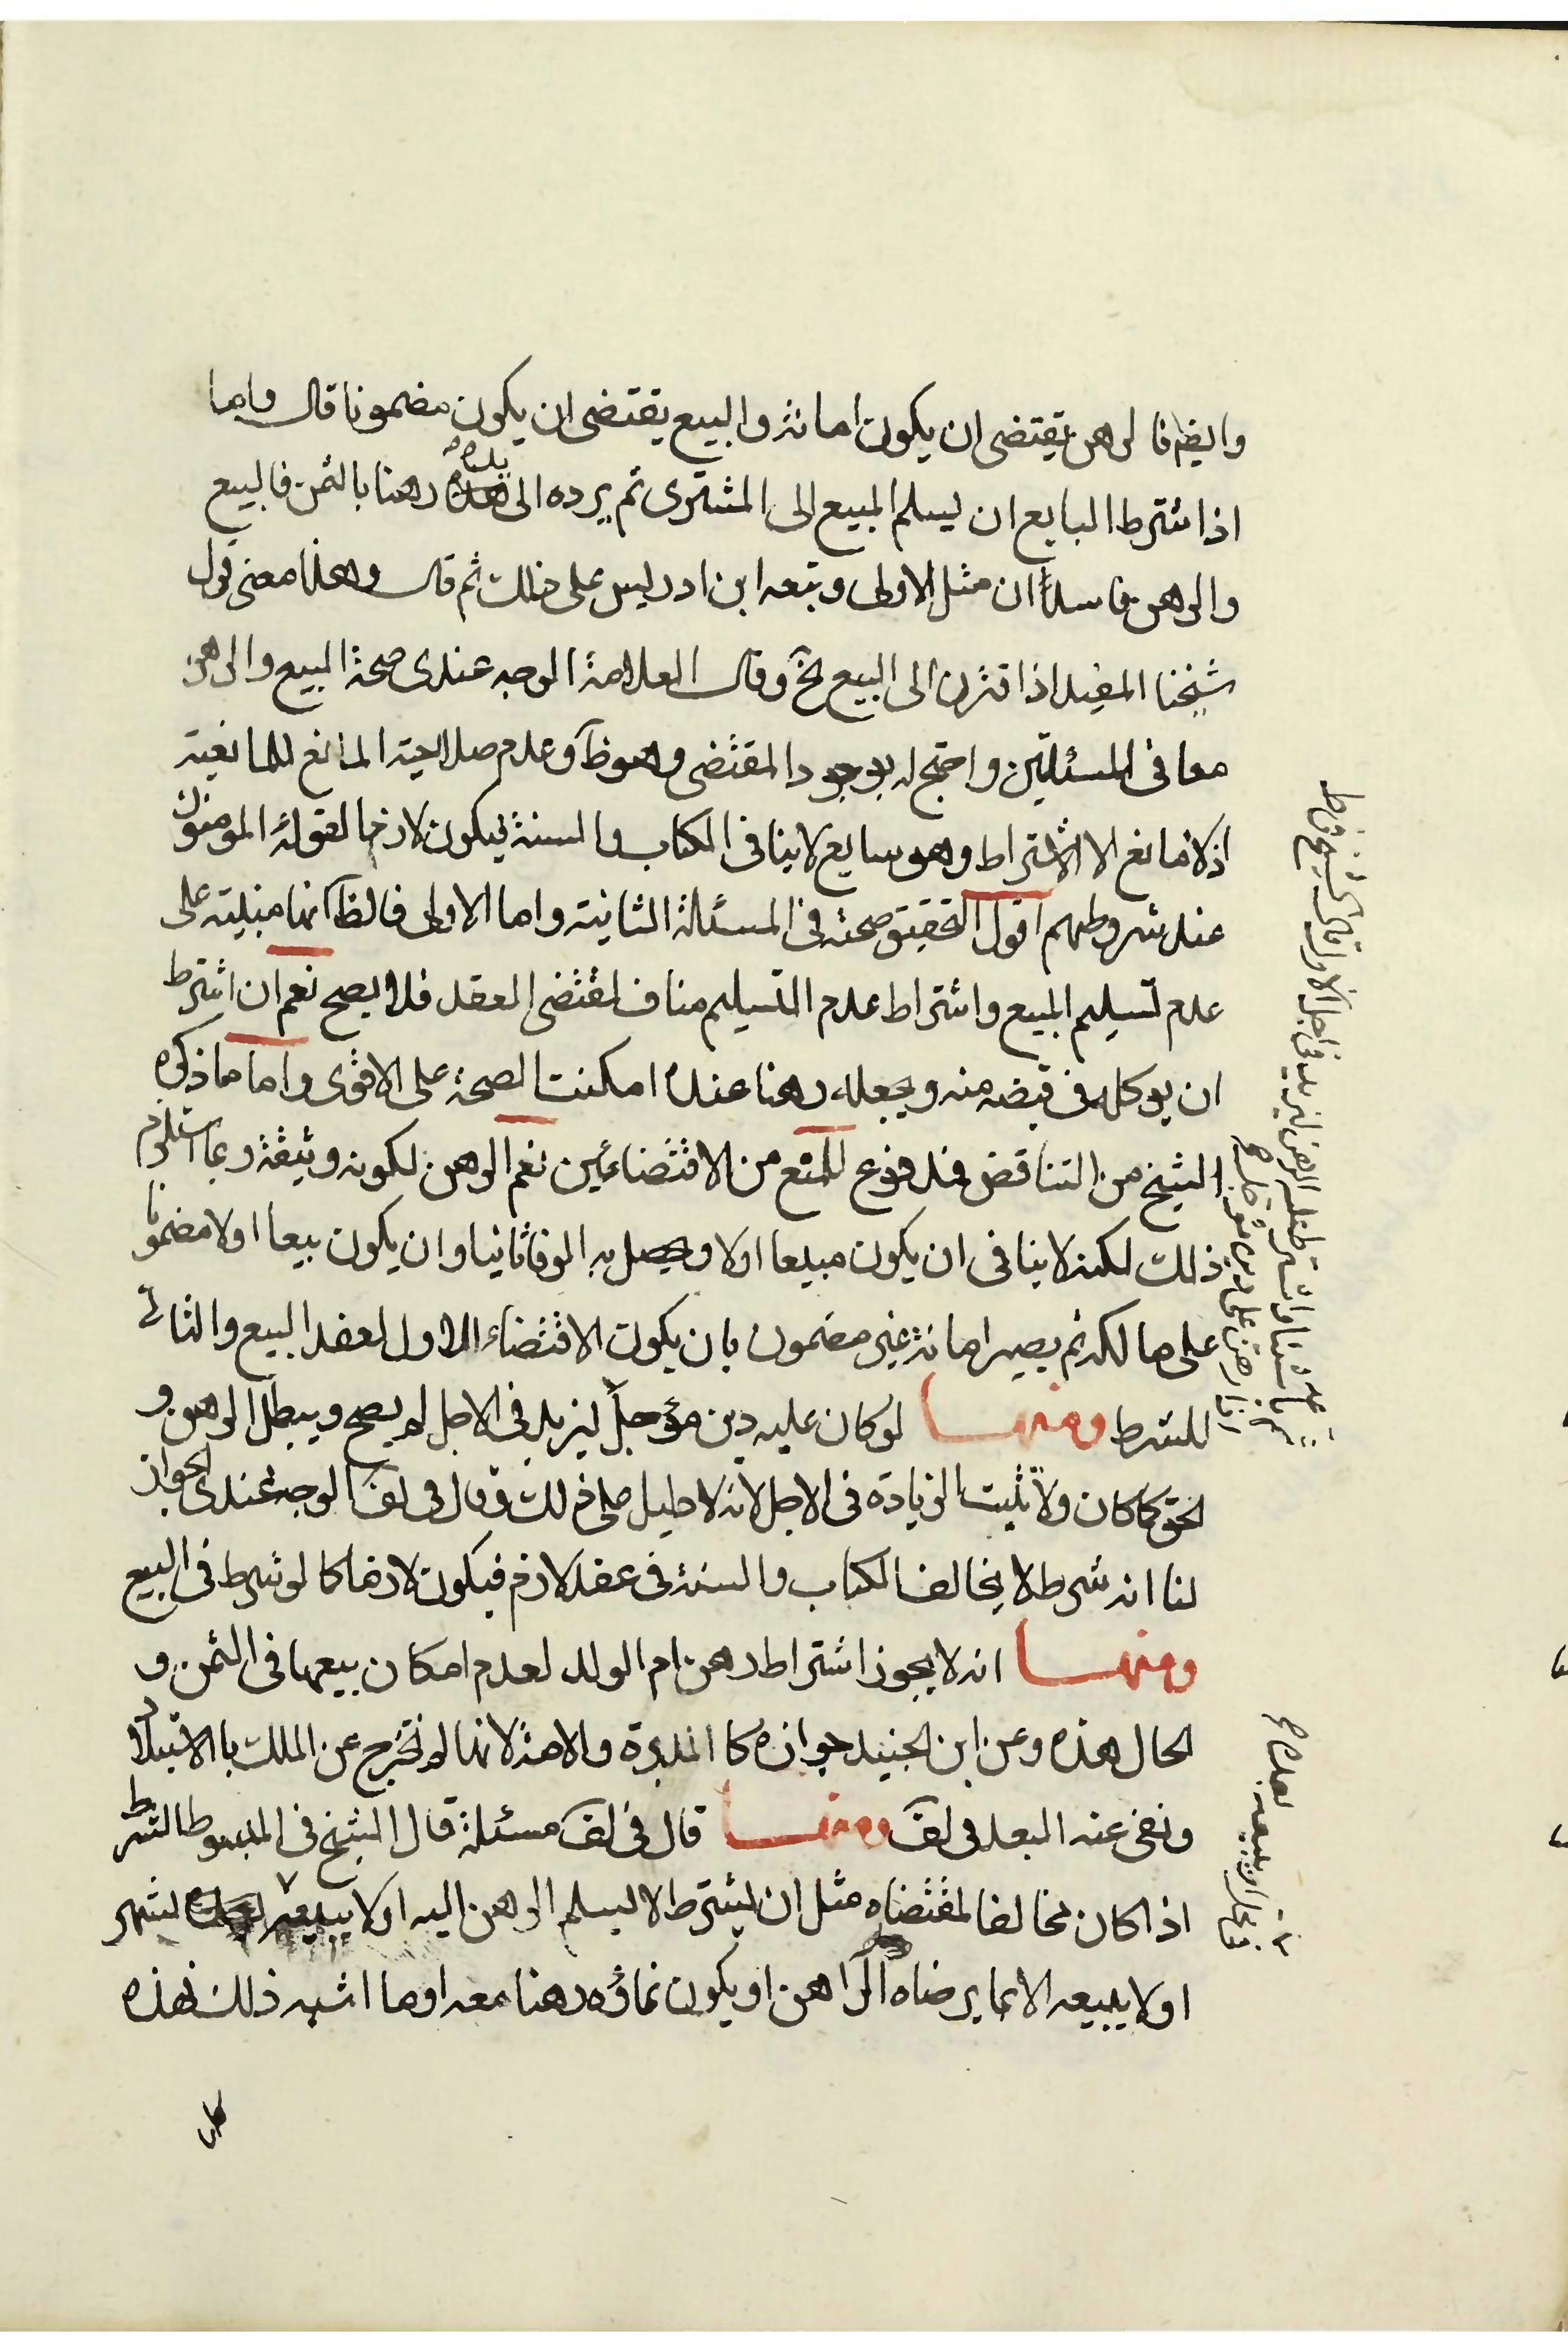 وايضا فالرهن يقتضى ان يكون امانة والبيع يقتضى ان يكون مضمونا قال واما
اذا شترط البايع ان يسلم المبيع الى المشترى ثم يرده الى يده رهنا بالثمن فالبيع
والرهن فاسدان مثل الاولى وتبعه ابن ادريس على ذلك ثم قال وهذا معنى قول
شيخنا المفيد اذا قترن الى البيع الخ وقال العلامة الوجه عندى صحة البيع والرهن
معا فى المسئلتين واحتج له بوجود المقتضى وهو ظ وعدم صلاحية المانع للمانعية
اذ لا مانع الا الاشتراط وهو سايع لا ينافى الكتاب والسنة فيكون لازما لقوله المومنون
عند شروطهم اقول التحقيق صحته فى المسئلة الثانية واما الاولى فالظ انها مبنية على
عدم تسليم المبيع واشتراط عدم التسليم مناف لمقتضى العقد فلا يصح نعم ان اشترط
ان يوكله فى قبضه منه ويجعله رهنا عنده امكنت الصحة على الاقوى واما ما ذكره
الشيخ من التناقض فمدفوع للمنع من الاقتضائين نعم الرهن لكونه وثيقة ربما استلزم
ذلك لكنه لا ينافى ان يكون مبيعا اولا ويحصل به الوفا ثانيا وان يكون بيعا اولا مضمونا
على مالكه ثم يصير امانة غير مضمون بان يكون الاقتضاء الاول لعقد البيع والثانى
للشرط ومنها لو كان عليه دين مؤجلا ليزيد فى الاجل لم يصح ويبطل الرهن و
الحق كما كان ولا تثبت الزيادة فى الاجل لانه لا دليل على ذلك وقال فى لف الوجه عندى الجواز
لنا انه شرط لا يخالف الكتاب والسنة فى عقد لازم فيكون لازما كما لو شرط فى البيع
ومنها انه لا يجوز اشتراط رهن ام الولد لعدم امكان بيعها فى الثمن و
الحال هذه وعن ابن الجنيد جوازه كا المدبرة والامة لانها لم تخرج عن الملك با الاستيلاد
ونفى عنه البعد فى لف ومنها قال فى لف مسئلة قال الشيخ فى المبسوط الشرط
اذا كان مخالفا لمقتضاه مثل ان يشترط لا يسلم الرهن اليه او لا يبيعه لشهر
او لا يبيعه الا بما يرضاه الراهن او يكون نماؤه رهنا معه او ما اشبه ذلك فهذه